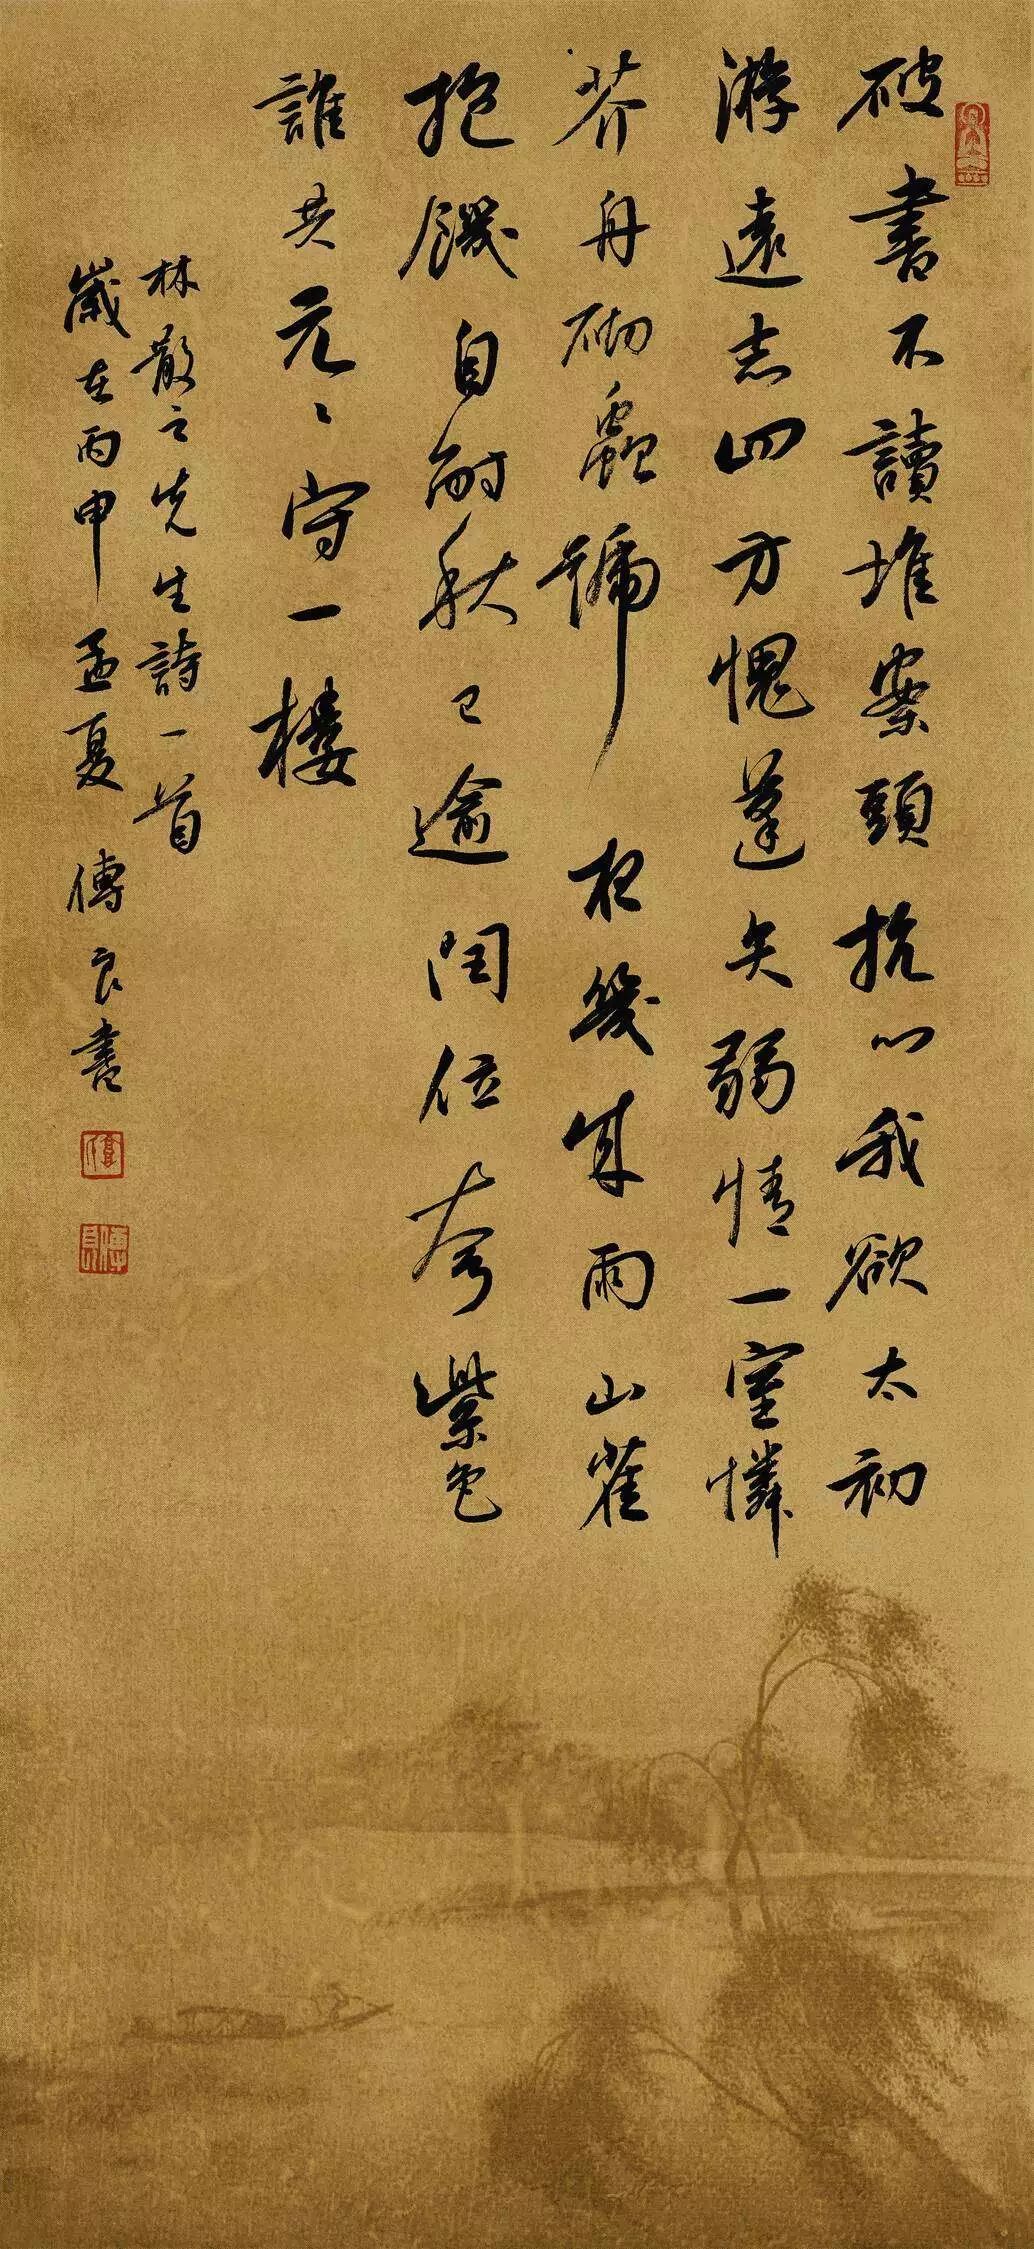 破書不讀堆案頭抗心我欲太初
游遠志四方愧蓬矢弱情一室憐
芥舟砌蟲號夜幾成雨山雀
抱饑自耐秋已逾閏位夸紫色
誰共元〻守一樓
林散之先生詩一首
歲在丙申孟夏傅良書